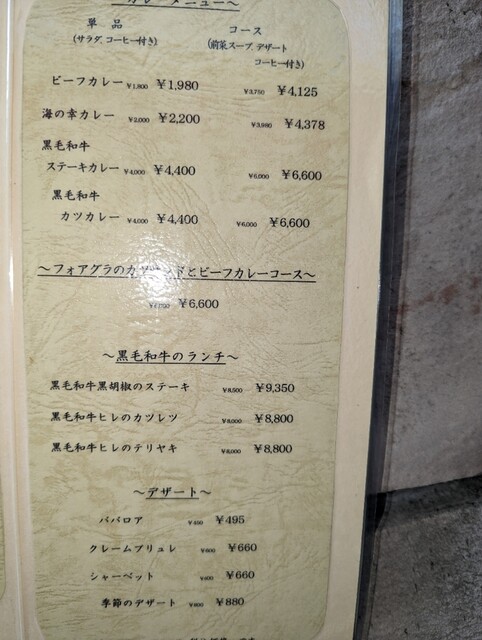 カレーメニュー～
単品　コース
(サラダ、コーヒー付き)　(前菜スープ、デザート
コーヒー付き)
ビーフカレー ¥1,800 ¥1,980　¥3,750 ¥4,125
海の幸カレー ¥2,000 ¥2,200　¥3,980 ¥4,378
黒毛和牛
ステーキカレー ¥4,000 ¥4,400　¥6,000 ¥6,600
黒毛和牛
カツカレー ¥4,000 ¥4,400　¥6,000 ¥6,600
～フォアグラのカツサンドとビーフカレーコース～
¥6,600
～黒毛和牛のランチ～
黒毛和牛黒胡椒のステーキ ¥8,500 ¥9,350
黒毛和牛ヒレのカツレツ ¥8,000 ¥8,800
黒毛和牛ヒレのテリヤキ ¥8,000 ¥8,800
～デザート～
ババロア ¥450 ¥495
クレームブリュレ ¥600 ¥660
シャーベット ¥600 ¥660
季節のデザート ¥800 ¥880